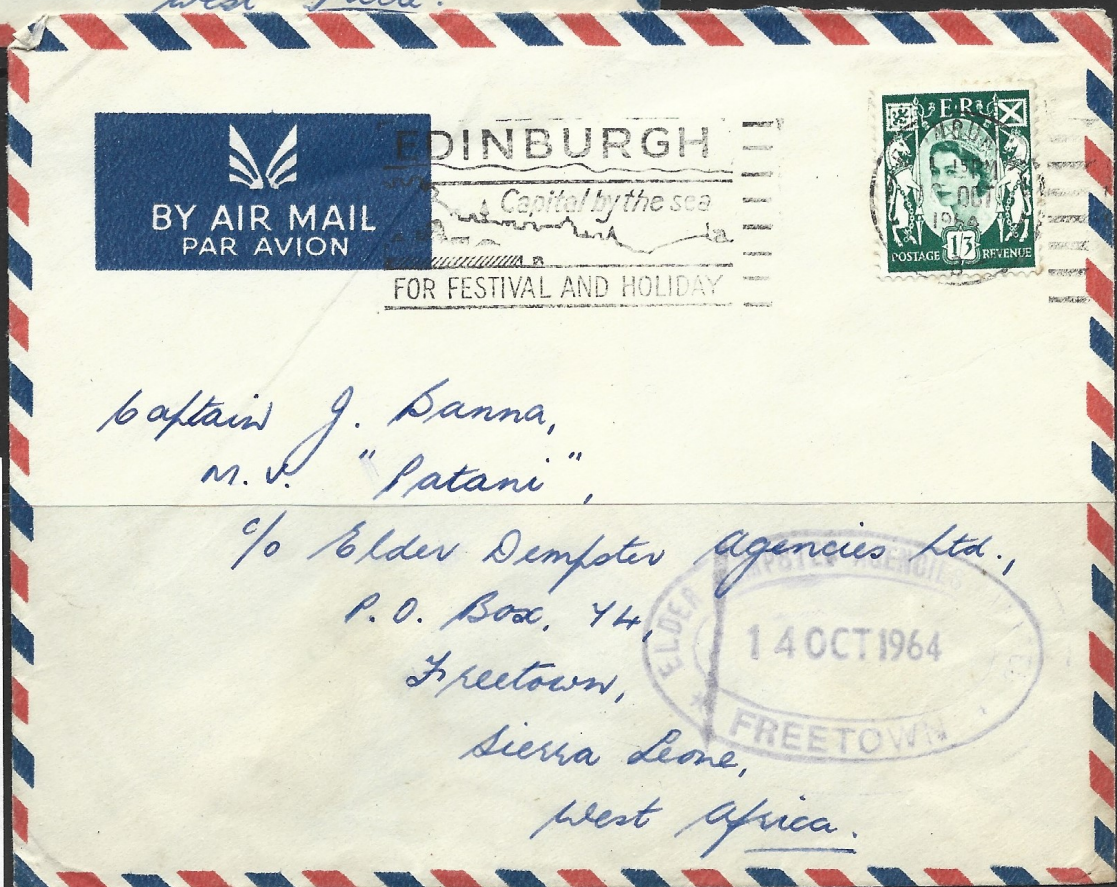 West Africa.
BY AIR MAIL
PAR AVION
EDINBURGH
Capital by the sea
FOR FESTIVAL AND HOLIDAY
E R
OCT
1964
POSTAGE 1/3 REVENUE
Captain J. Banna,
M.V. "Patani",
c/o Elder Dempster Agencies Ltd.,
P.O. Box, 74,
Freetown,
Sierra Leone,
West Africa.
ELDER DEMPSTER AGENCIES
14 OCT 1964
FREETOWN